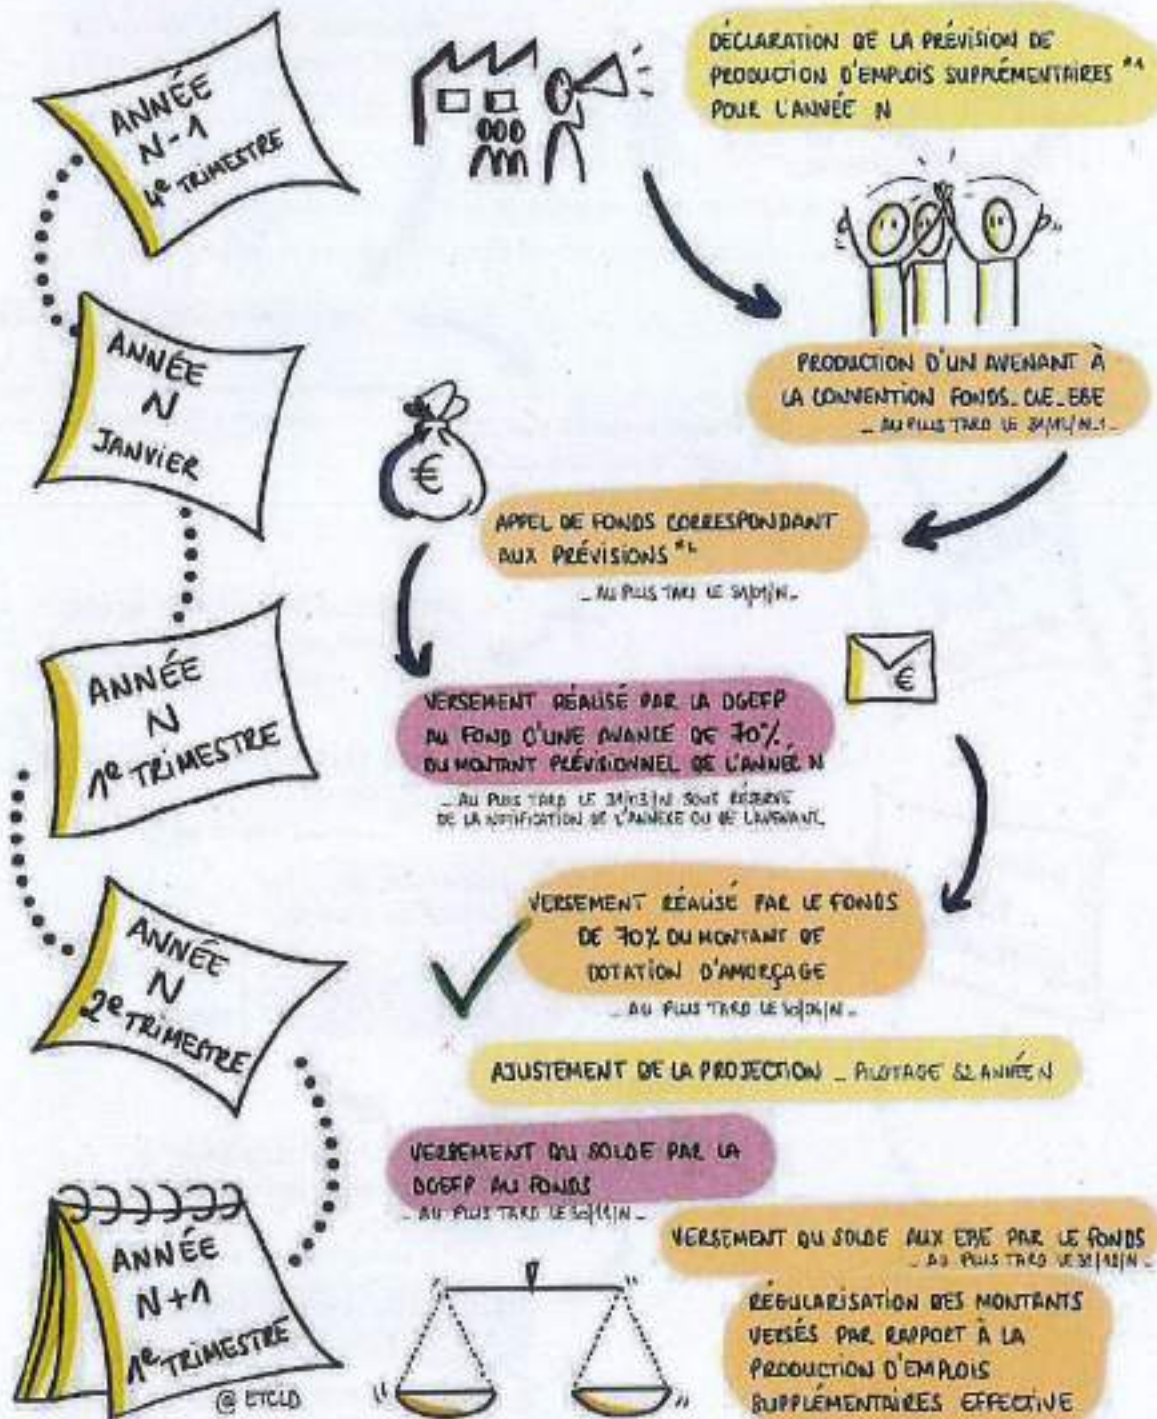 ANNÉE
N-1
4e TRIMESTRE
DÉCLARATION DE LA PRÉVISION DE
PRODUCTION D'EMPLOIS SUPPLÉMENTAIRES *1
POUR L'ANNÉE N
PRODUCTION D'UN AVENANT À
LA CONVENTION FONDS_CLE_EBE
_ AU PLUS TARD LE
ANNÉE
N
JANVIER
€
APPEL DE FONDS CORRESPONDANT
AUX PRÉVISIONS
_ AU PLUS TARD LE 31/01/N _
ANNÉE
N
1e TRIMESTRE
VERSEMENT RÉALISÉ PAR LA DGEFP
AU FOND D'UNE AVANCE DE 70%
DU MONTANT PRÉVISIONNEL DE L'ANNÉE N
_ AU PLUS TARD LE 31/03/N SOUS RÉSERVE
DE LA NOTIFICATION DE L'ANNEXE OU DE L'AVENANT_
€
ANNÉE
N
2e TRIMESTRE
VERSEMENT RÉALISÉ PAR LE FONDS
DE 70% DU MONTANT DE
DOTATION D'AMORÇAGE
_ AU PLUS TARD LE 30/06/N _
AJUSTEMENT DE LA PROJECTION _ PILOTAGE S2 ANNÉE N
VERSEMENT DU SOLDE PAR LA
DGEFP AU FONDS
_ AU PLUS TARD LE 30/11/N _
VERSEMENT DU SOLDE AUX EBE PAR LE FONDS
_ AU PLUS TARD LE 31/12/N _
ANNÉE
N+1
1e TRIMESTRE
@ ETCLD
RÉGULARISATION DES MONTANTS
VERSÉS PAR RAPPORT À LA
PRODUCTION D'EMPLOIS
SUPPLÉMENTAIRES EFFECTIVE